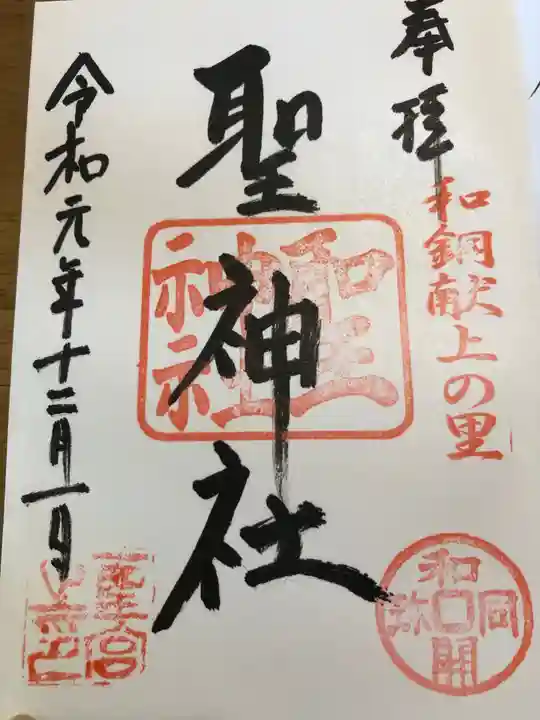 奉拝
和銅献上の里
和同開珎
聖神社
聖神社
令和元年十二月一日